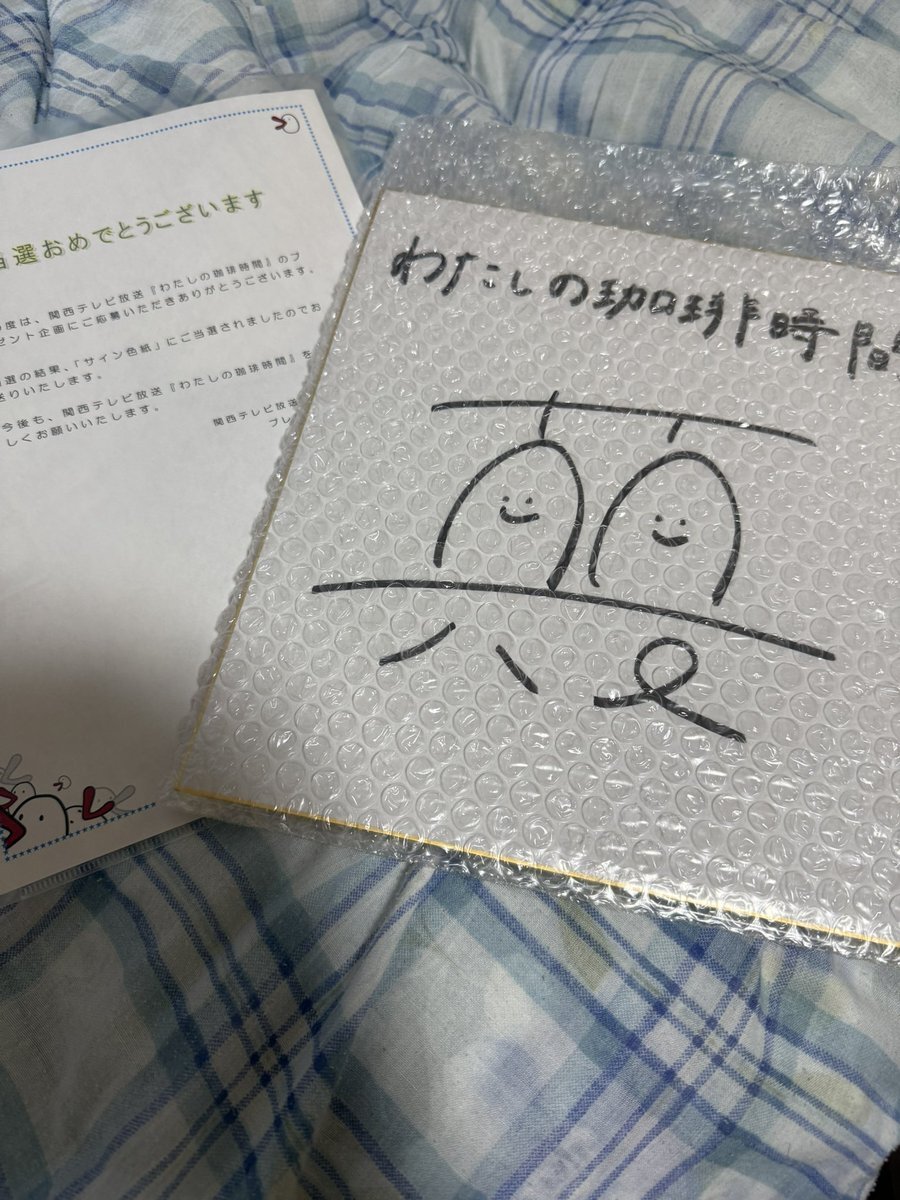 当選おめでとうございます
の度は、関西テレビ放送『わたしの珈琲時間』のプ
ゼント企画にご応募いただきありがとうございます。
選の結果、「サイン色紙」にご当選されましたのでお
りいたします。
今後も、関西テレビ放送『わたしの珈琲時間』を
しくお願いいたします。
関西テレビ放送
プレ
わたしの珈琲時間